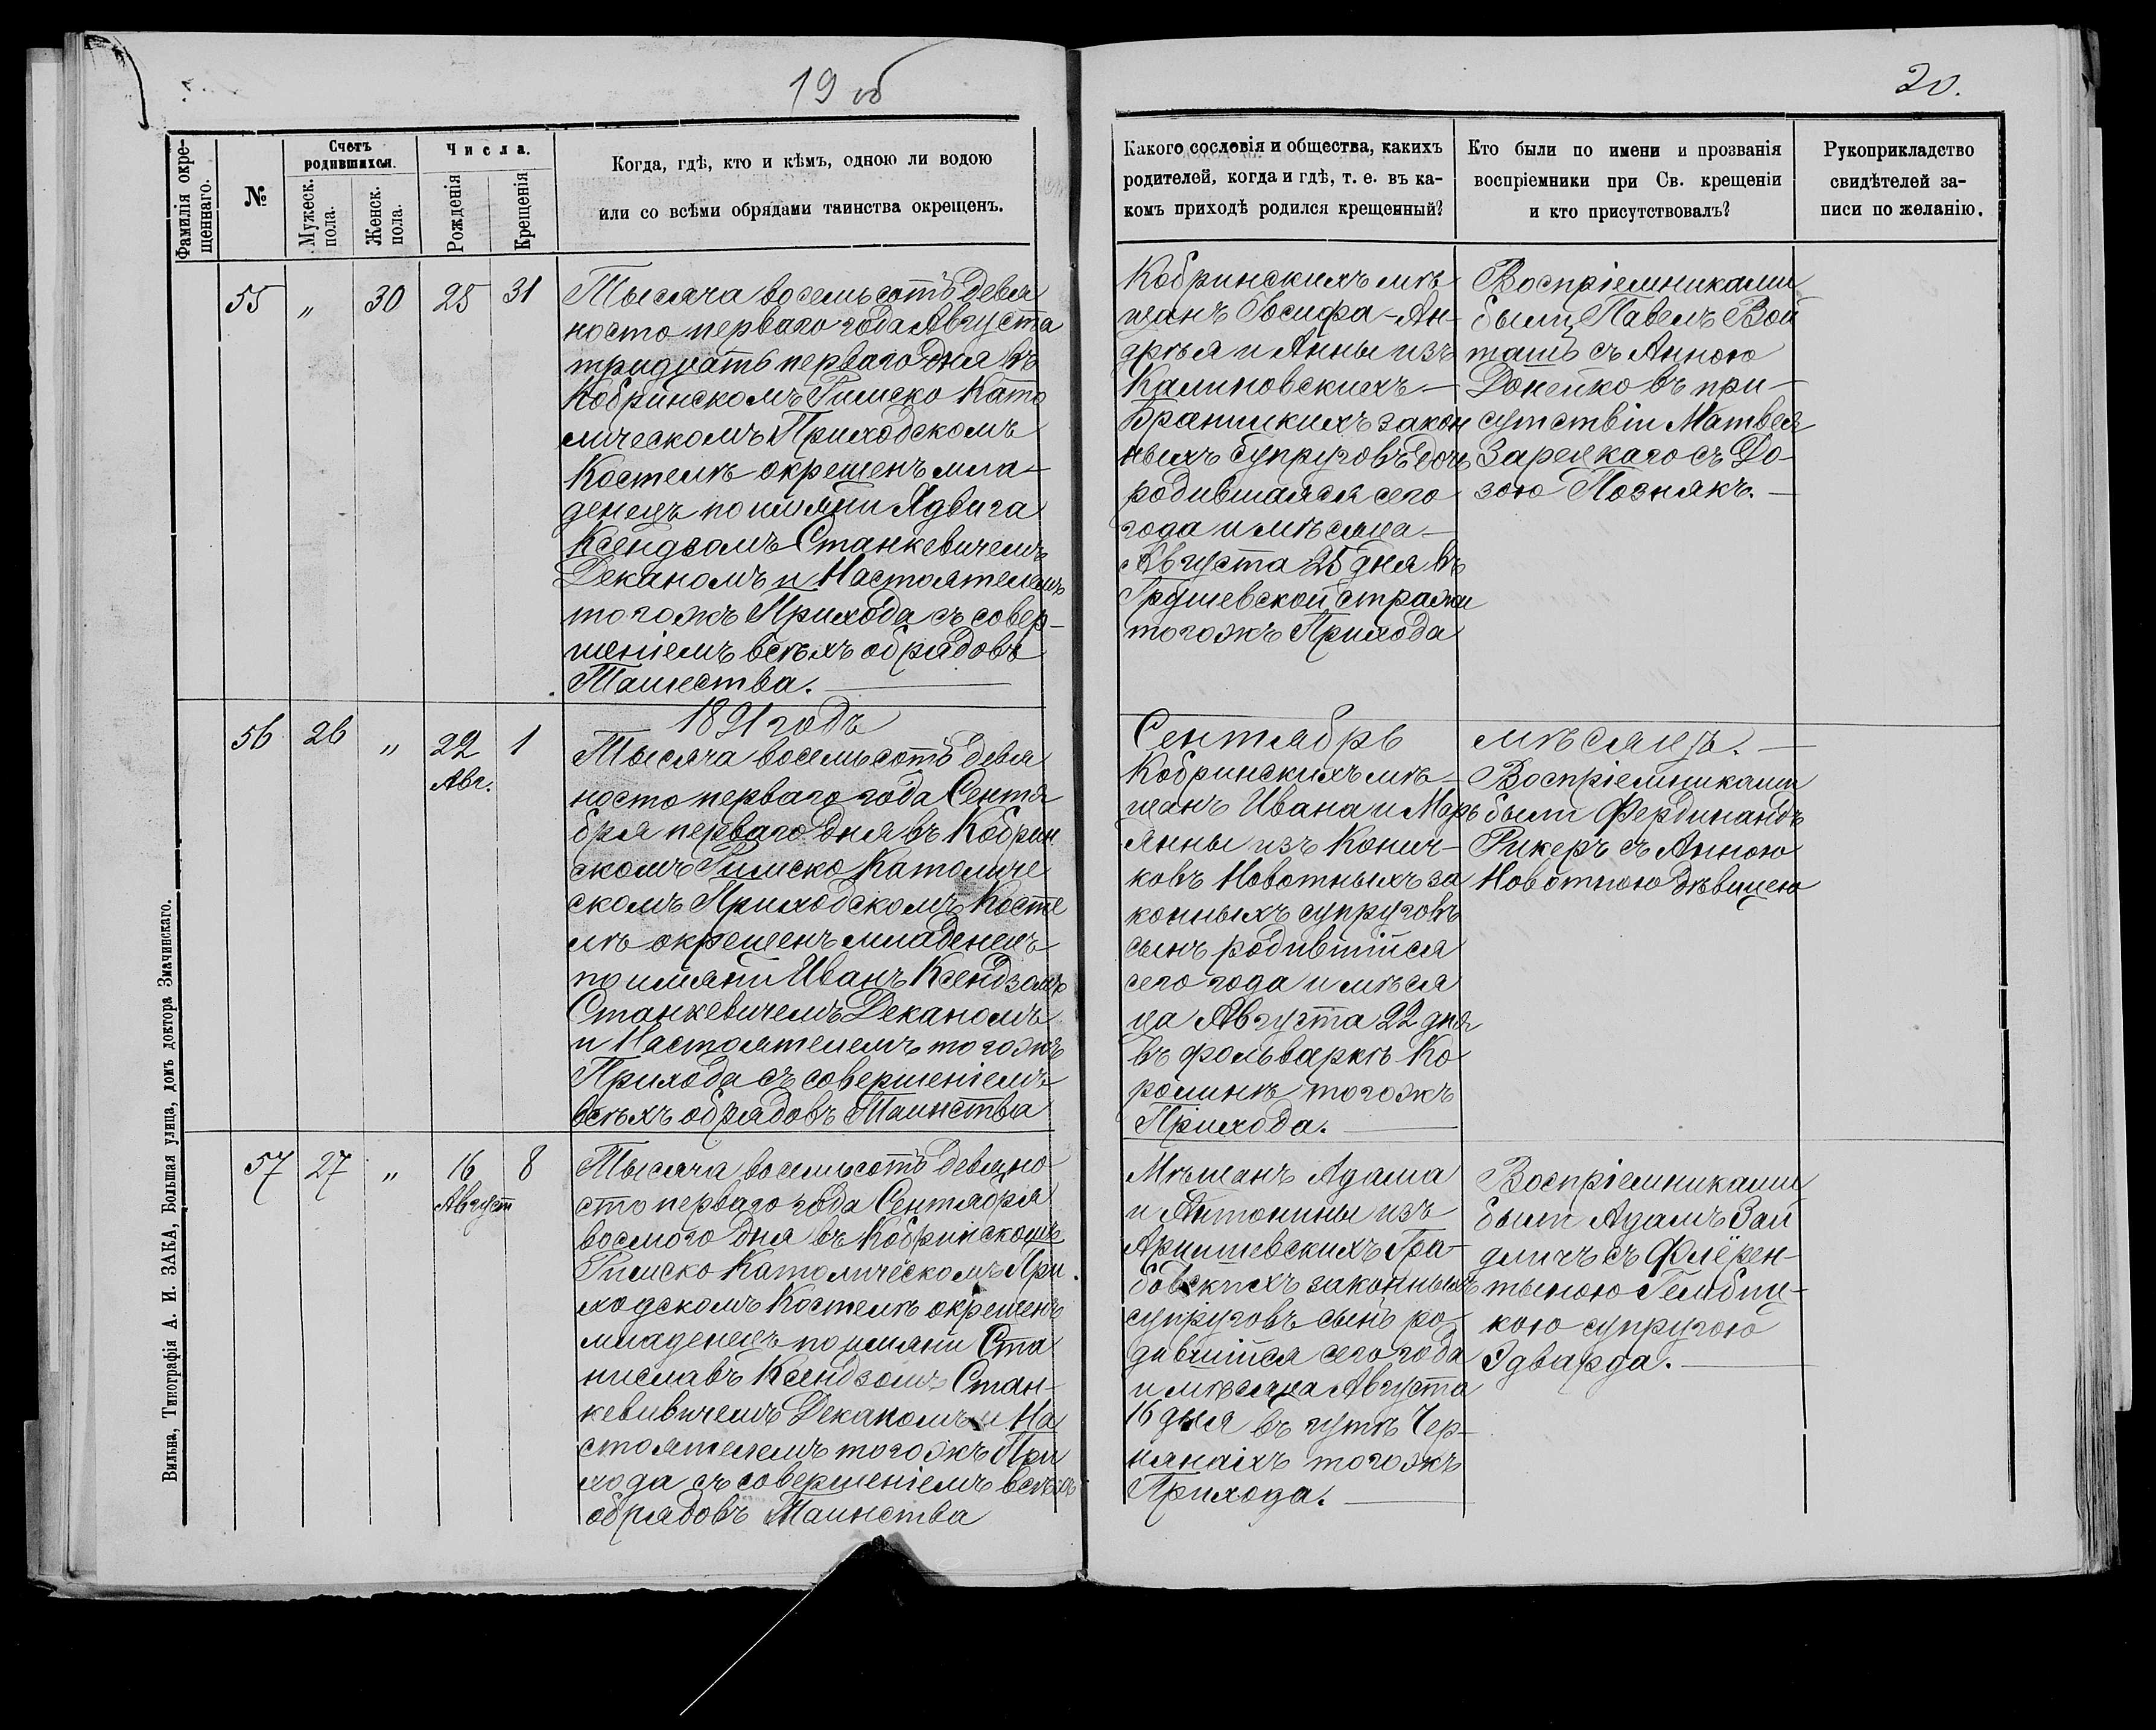 19 об
20.
Фамилія окре-
щеннаго.
№
Счетъ
родившихся.
Мужеск.
пола.
Женск.
пола.
Числа.
Рожденія
Крещенія
Когда, гдѣ, кто и кѣмъ, одною ли водою
или со всѣми обрядами таинства окрещенъ.
Какого сословія и общества, какихъ
родителей, когда и гдѣ, т. е. въ ка-
комъ приходѣ родился крещенный?
Кто были по имени и прозванія
воспріемники при Св. крещеніи
и кто присутствовалъ?
Рукоприкладство
свидѣтелей за-
писи по желанію.
55 " 30 25 31
Тысяча восемьсотъ девя
носто перваго года Августа
тридцать перваго дня въ
Кобринскомъ Римско Като
лическомъ Приходскомъ
Костелѣ окрещенъ мла-
денецъ по имяни Ядвига
Ксендзомъ Станкевичемъ
Деканомъ и Настоятелемъ
тогожъ Прихода съ совер-
шеніемъ всѣхъ обрядовъ
Таинства.
Кобринскихъ мѣ-
щанъ Іосифа-Ан-
дрѣя и Анны изъ
Калиновскихъ-
Браницкихъ закон
ныхъ супруговъ дочь
родившаяся сего
года и мѣсяца-
Августа 25 дня въ
Грушевской стражи
тогожъ Прихода
Воспріемниками
были Павелъ Вой
ташъ съ Анною
Донейко въ при-
сутствіи Матвея
Зарецкаго съ До-
зою Познякъ.
1891 годъ
Сентябрь мѣсяцъ.
56 26 " 22 1
Авг.
Тысяча восемьсотъ девя
носто перваго года Сентя
бря перваго дня въ Кобрин
скомъ Римско Католиче
скомъ Приходскомъ Косте
лѣ окрещенъ младенецъ
по имяни Иванъ Ксендзомъ
Станкевичемъ Деканомъ
и Настоятелемъ тогожъ
Прихода съ совершеніемъ
всѣхъ обрядовъ Таинства
Кобринскихъ мѣ-
щанъ Ивана и Марь
янны изъ Конич-
ковъ Новотныхъ за
конныхъ супруговъ
сынъ родившійся
сего года и мѣся
ца Августа 22 дня
въ фольваркѣ Ко
ролинѣ тогожъ
Прихода.
Воспріемниками
были Фердинандъ
Рикеръ съ Анною
Новотною дѣвицею
57 27 " 16 8
Август
Тысяча восемьсотъ девяно-
сто перваго года Сентября
восмого дня въ Кобринскомъ
Римско Католическомъ При
ходскомъ Костелѣ окрещенъ
младенецъ по имяни Ста
ниславъ Ксендзомъ Стан-
кевивичемъ Деканомъ и На
стоятелемъ тогожъ При
хода съ совершеніемъ всѣхъ
обрядовъ Таинства
Мѣщанъ Адама
и Антонины изъ
Гра-
бовскихъ законныхъ
супруговъ сынъ ро-
дившійся сего года
и мѣсяца Августа
16 дня въ гутѣ Чер-
няніхъ тогожъ
Прихода.
Воспріемниками
были Адамъ Зай
дличъ съ Флёрен-
тыною Гембиц-
кою супругою
Эдварда.
Вильна, Типографія А. И. ЗАКА, Большая улица, домъ доктора Змачинскаго.